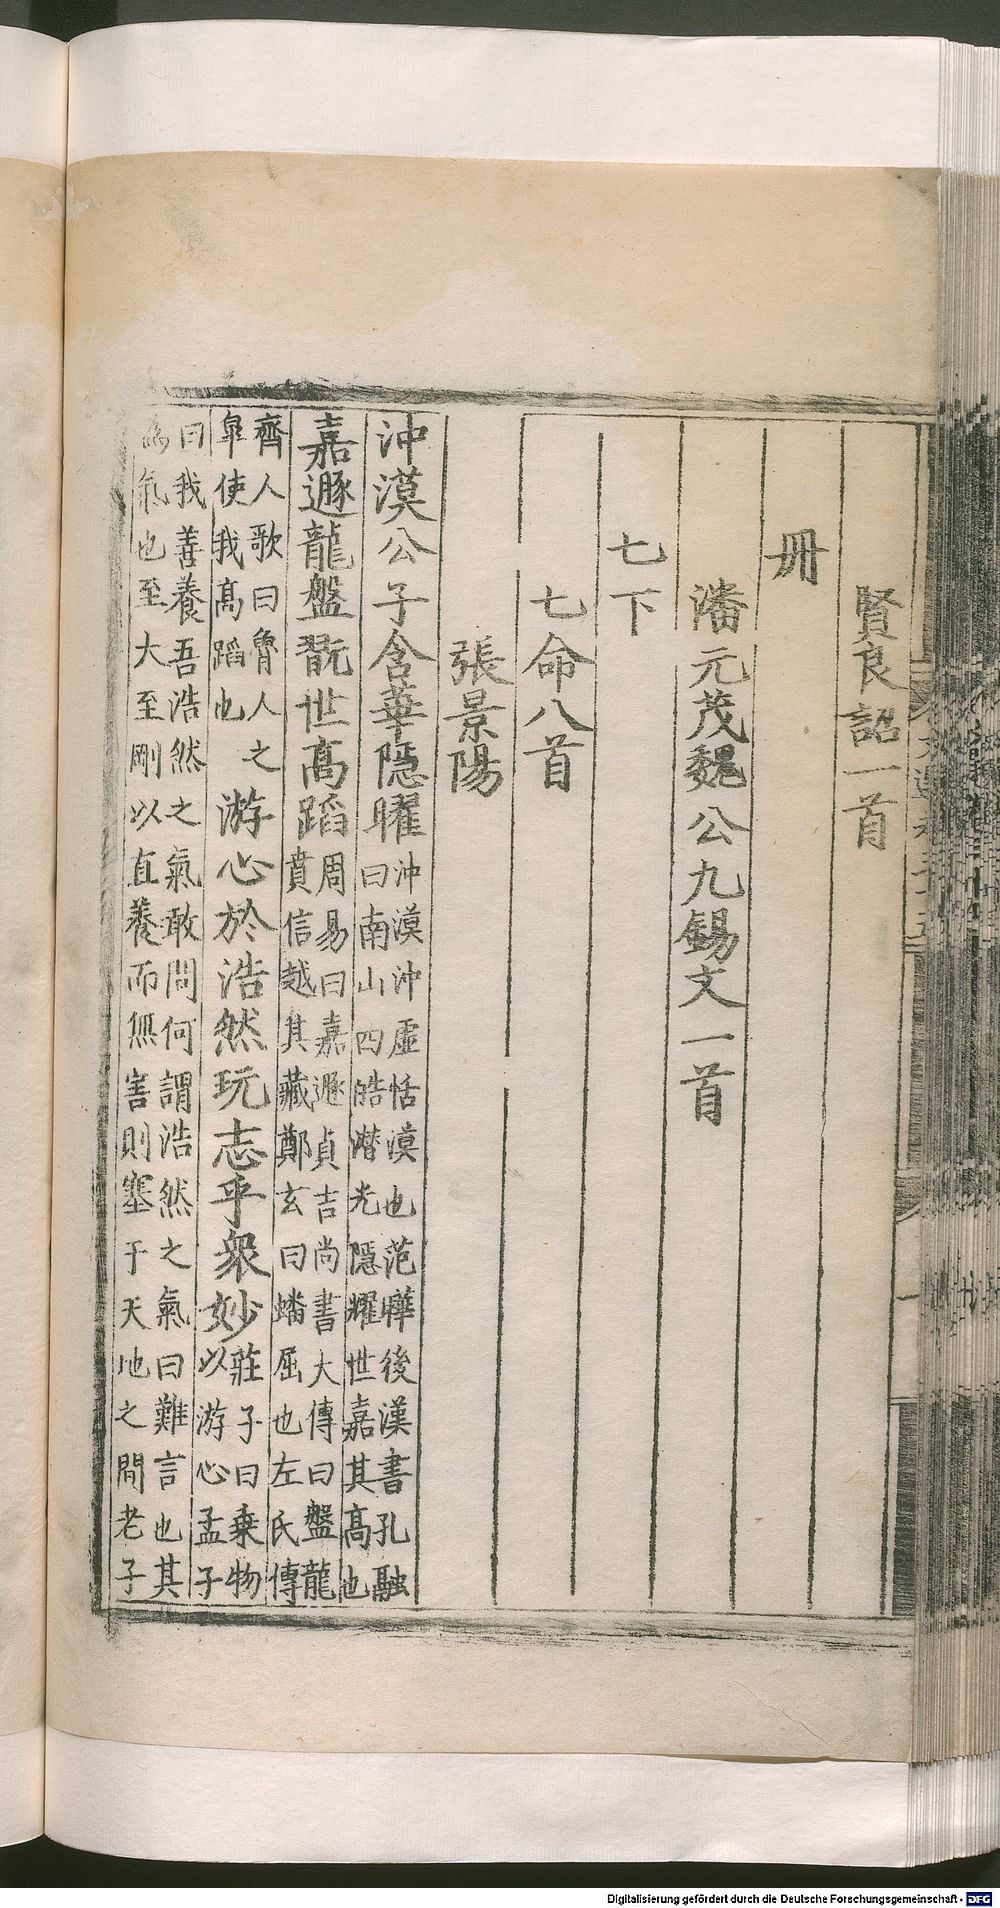 賢良詔一首
冊
潘元茂魏公九錫文一首
七下
七命八首
張景陽
沖漠公子含華隱曜沖漠沖虛恬漠也范曄後漢書孔融
曰南山四皓潛光隱耀世嘉其高也
嘉遯龍盤翫世高蹈周易曰嘉遯貞吉尚書大傳曰盤龍
賁信越其藏鄭玄曰蟠屈也左氏傳
齊人歌曰魯人之
皐使我高蹈也
游心於浩然玩志乎衆妙莊子曰乗物
以游心孟子
曰我善養吾浩然之氣敢問何謂浩然之氣曰難言也其
為氣也至大至剛以直養而無害則塞于天地之間老子
Digitalisierung gefördert durch die Deutsche Forschungsgemeinschaft - DFG